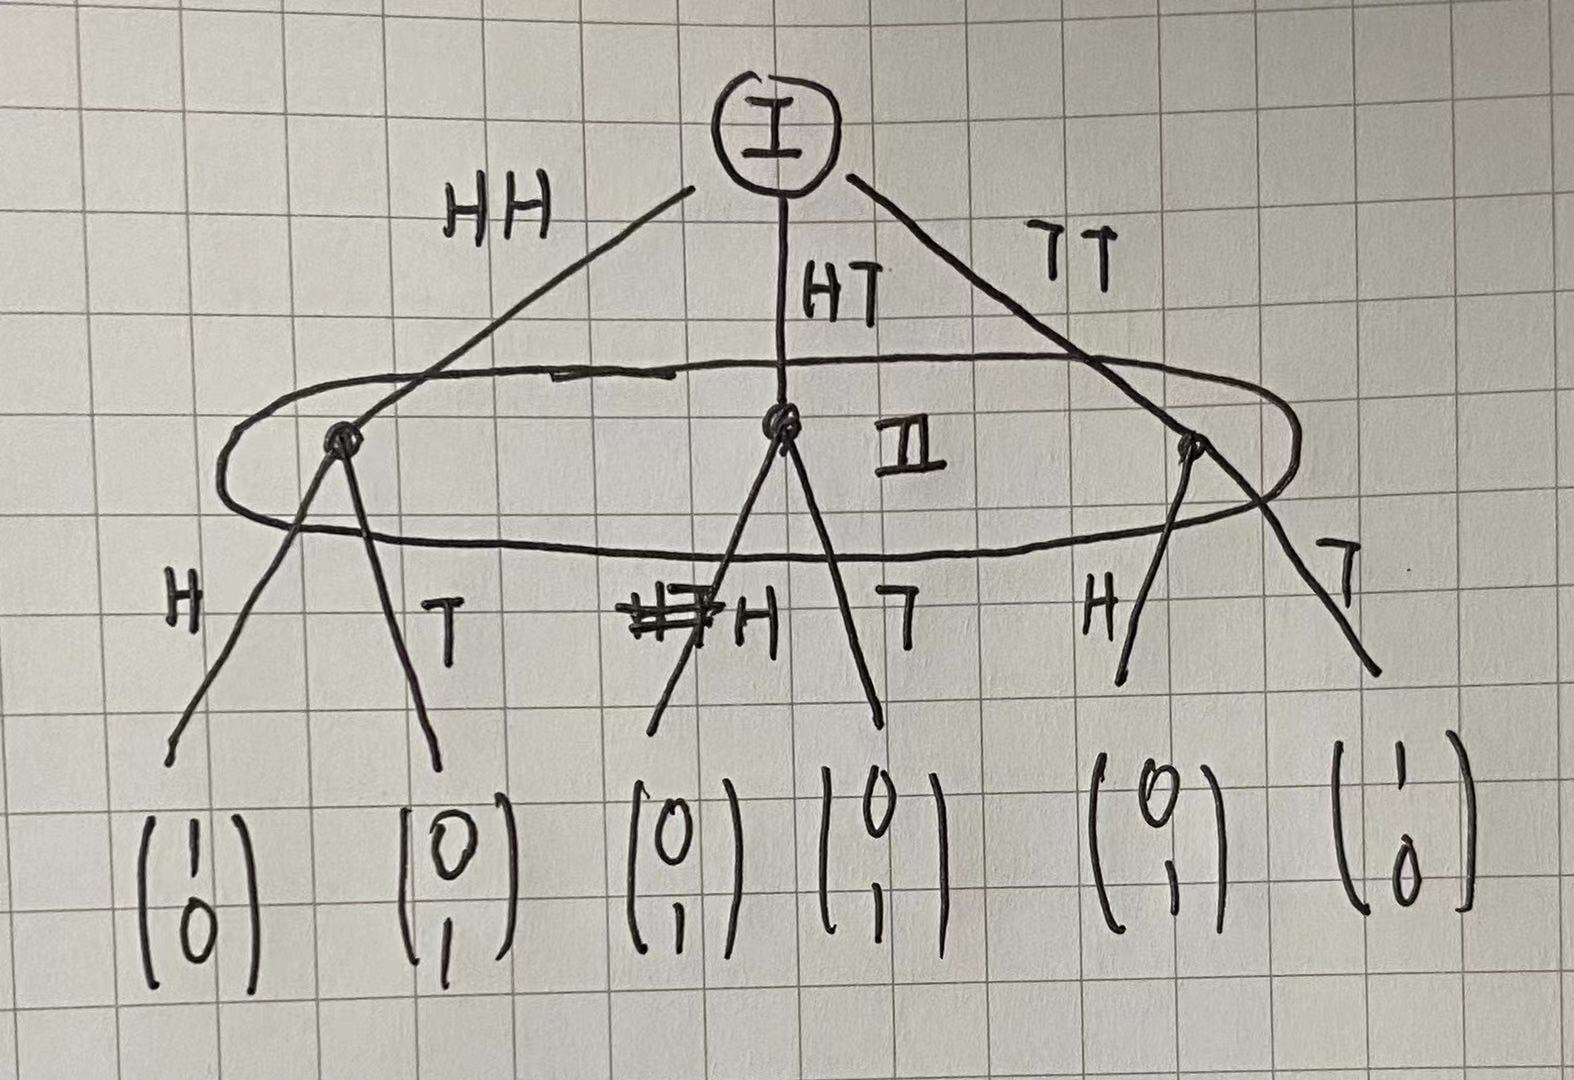 I
HH HT TT
II
H T H T H T
(1 0) (0 1) (0 1) (0 1) (0 1) (1 0)